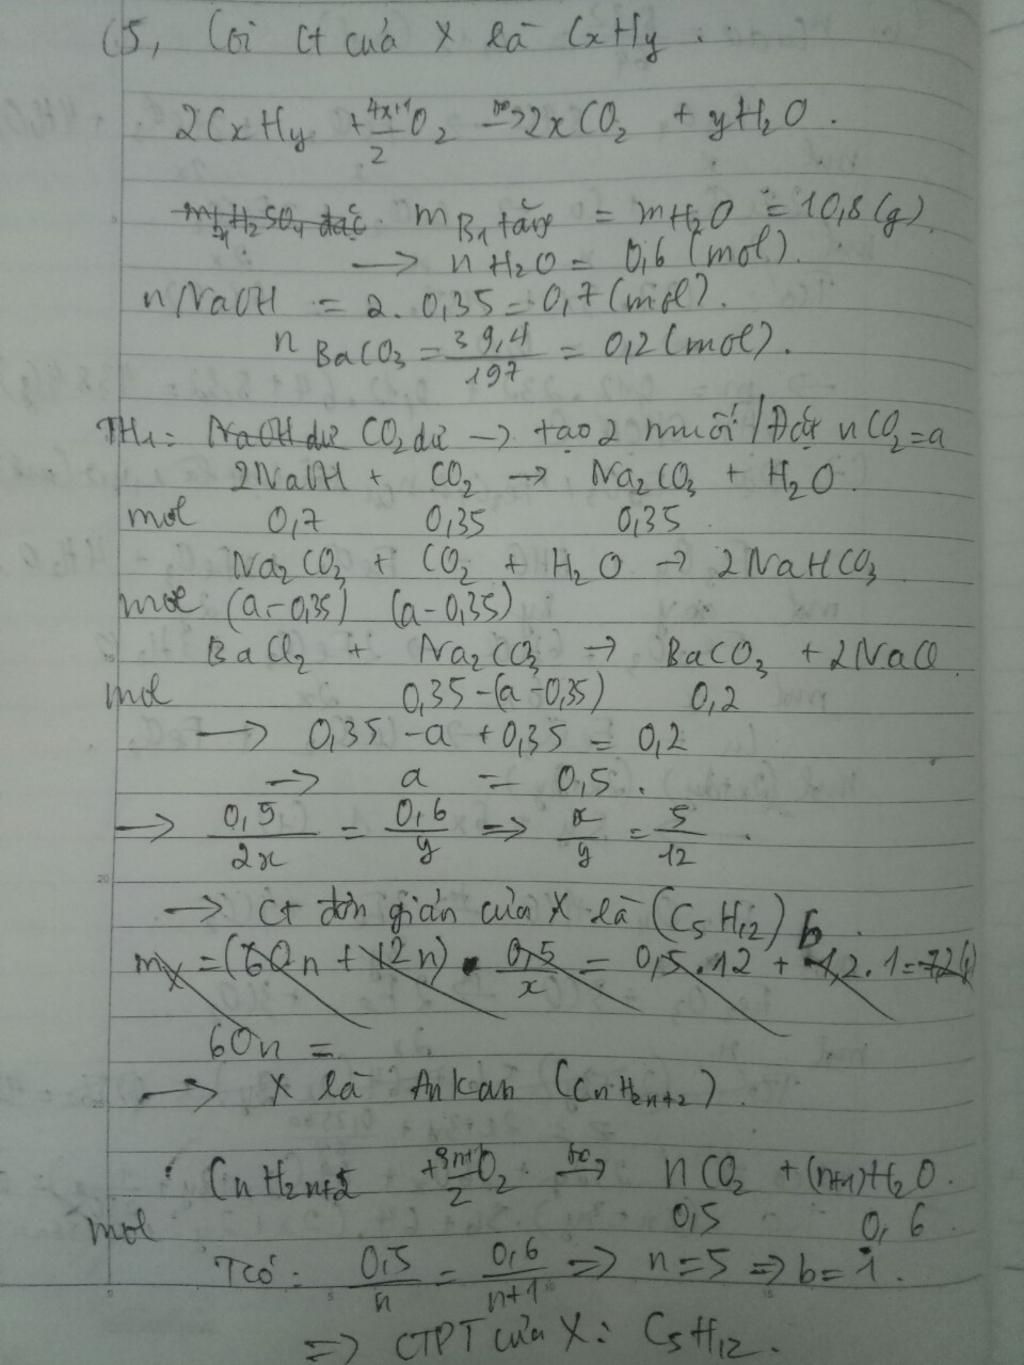 C5, Gọi Ct của X là CxHy.
2CxHy + 4x+y/2 O2 →to 2xCO2 + yH2O.
m B1 tăng = mH2O = 10,8 (g).
→ nH2O = 0,6 (mol).
nNaOH = 2. 0,35 = 0,7 (mol).
nBaCO3 = 39,4/197 = 0,2 (mol).
TH1: NaOH dư CO2 dư → tạo 2 muối / Đặt nCO2 = a
2NaOH + CO2 → Na2CO3 + H2O.
mol 0,7 0,35 0,35
Na2CO3 + CO2 + H2O → 2NaHCO3
mol (a-0,35) (a-0,35)
BaCl2 + Na2CO3 → BaCO3 + 2NaCl
mol 0,35-(a-0,35) 0,2
→ 0,35 - a + 0,35 = 0,2
→ a = 0,5.
→ 0,5/2x = 0,6/y => x/y = 5/12.
→ Ct đơn giản của X là (C5H12)b
mX = (60n + 12n) . 0,5/x = 0,5.12 + 1,2.1 = 7,2(
60n =
→ X là Ankan (CnH2n+2).
CnH2n+2 + 3n+1/2 O2 →to nCO2 + (n+1)H2O.
mol 0,5 0,6
Tcó: 0,5/n = 0,6/n+1 => n=5 => b=1.
=> CTPT của X: C5H12.